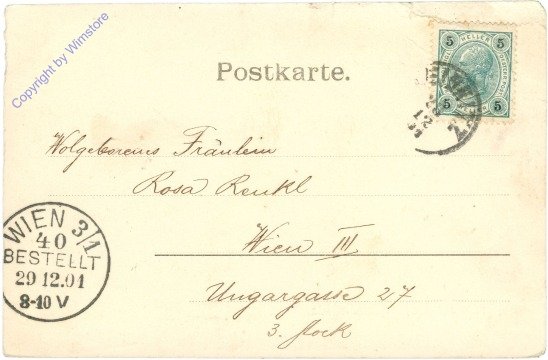 Copyright by Wimstore
Postkarte.
5 HELLER 5
5 5
Wolgeborenes Fräulein
Rosa Renkl
Wien III
Ungargasse 27
3. Stock
WIEN 3/1
40
BESTELLT
29 12.01
8-10 V